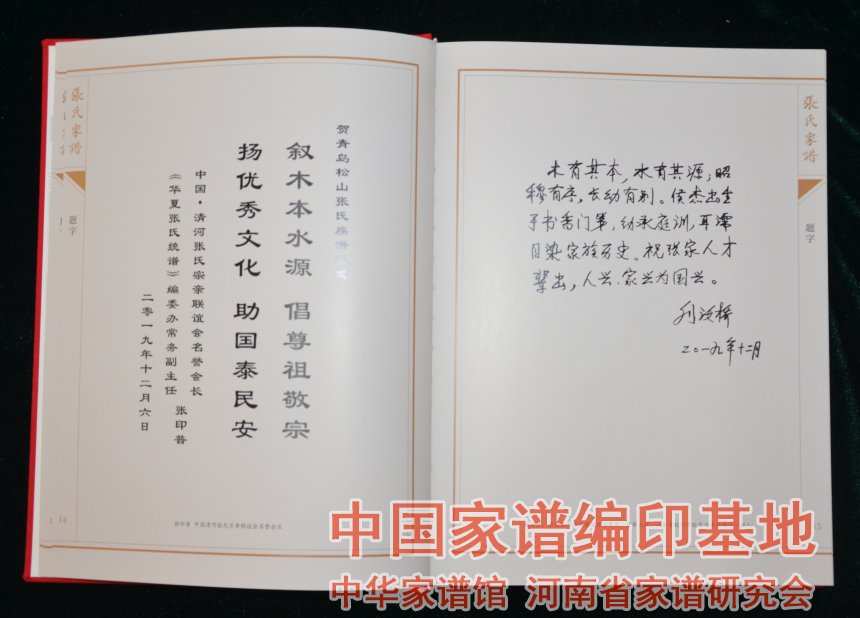 張氏家譜
题字
贺青岛松山张氏族谱
叙木本水源 倡尊祖敬宗
扬优秀文化 助国泰民安
中国·清河张氏宗亲联谊会名誉会长
《华夏张氏统谱》编委办常务副主任 张印普
二零一九年十二月六日
14
張氏家譜
题字
木有其本，水有其源，昭
穆有序，长幼有别。侯杰出生
于书香门第，幼承庭训，耳濡
目染家族历史。祝张家人才
辈出，人兴、家兴为国兴。
二〇一九年十二月
15
中国家谱编印基地
中华家谱馆 河南省家谱研究会